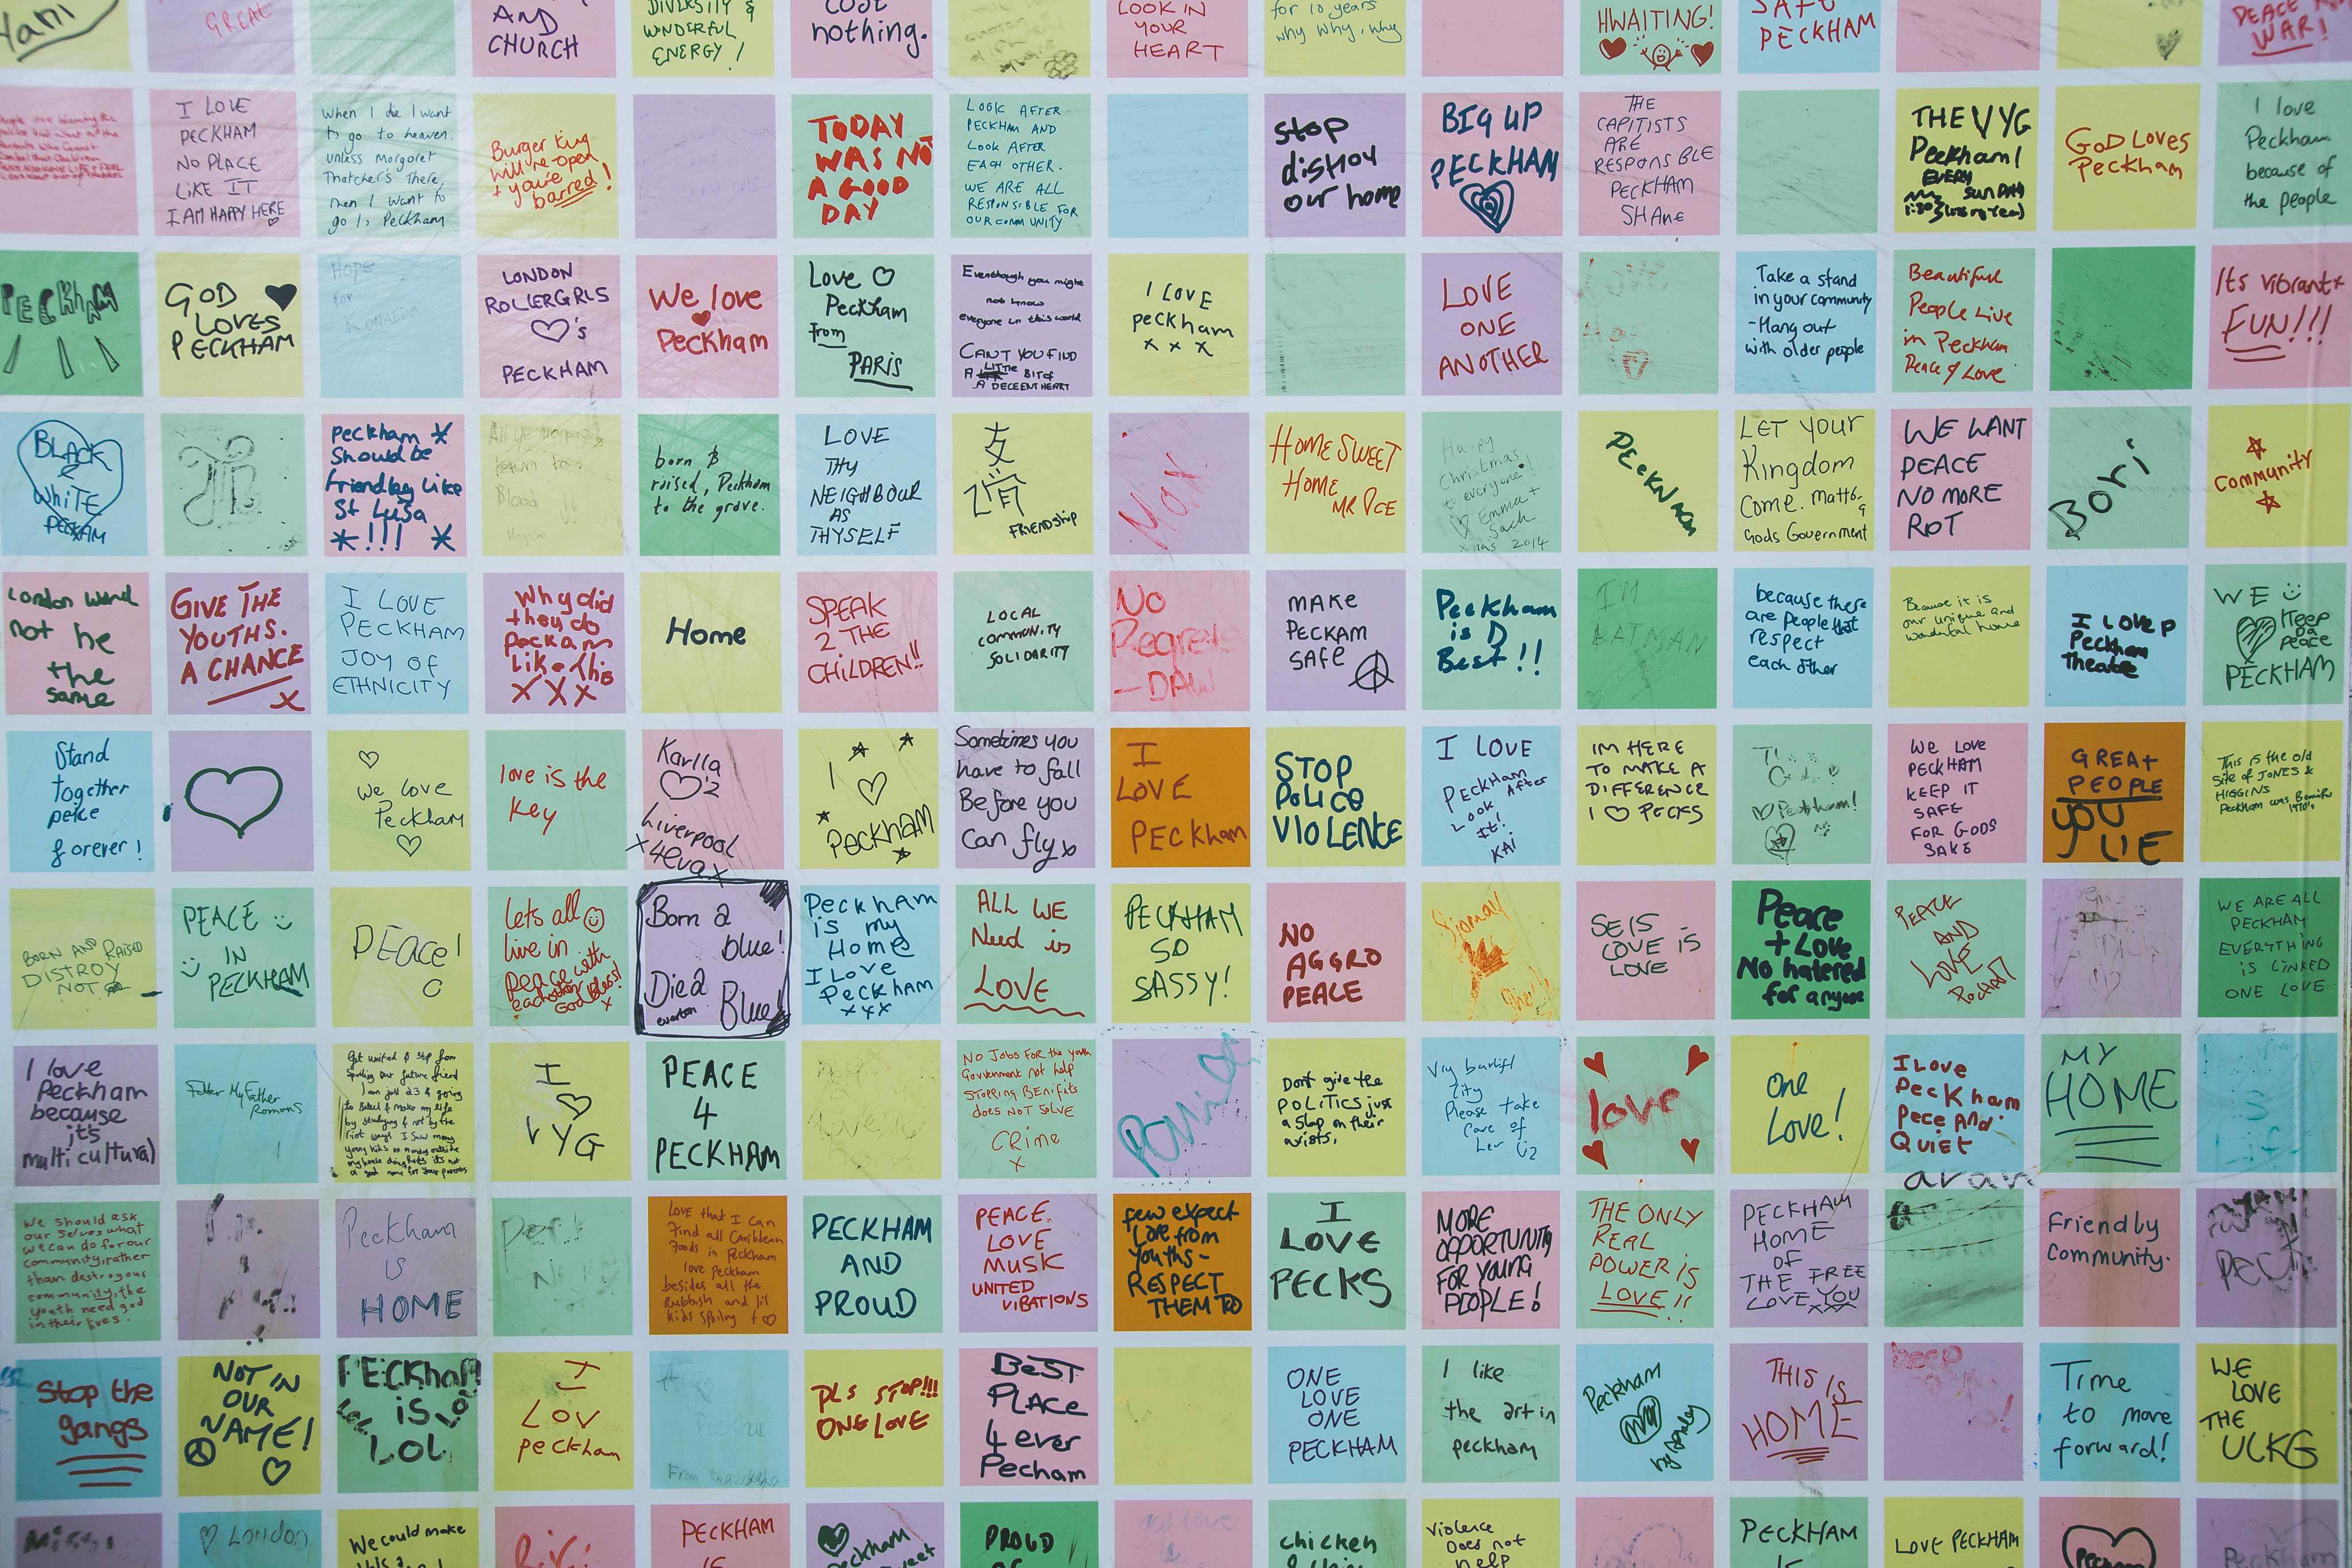 Yani
GREAT
AND
CHURCH
DIVERSITY &
WONDERFUL
ENERGY!
COST
nothing.
LOOK IN
YOUR
HEART
for 10 years
why why, why
HWAITING!
SAFE
PECKHAM
PEACE
WAR!
I LOVE
PECKHAM
NO PLACE
LIKE IT
I AM HAPPY HERE
When I die I want
to go to heaven.
unless Morgoret
Thatcher's There,
Then I want to
go to Peckham
Burger King
will re-open
+ you're
barred!
TODAY
WAS NOT
A GOOD
DAY
LOOK AFTER
PECKHAM AND
LOOK AFTER
EACH OTHER.
WE ARE ALL
RESPONSIBLE FOR
OUR COMMUNITY
stop
distroy
our home
BIG UP
PECKHAM
THE
CAPITISTS
ARE
RESPONSIBLE
PECKHAM
SHANE
THE VYG
Peckham!
EVERY
SUNDAY
GOD LOVES
Peckham
I love
Peckham
because of
the people
PECKHAM
GOD
LOVES
PECKHAM
Hope
for
LONDON
ROLLERGIRLS
♡'s
PECKHAM
We love
Peckham
Love ♡
Peckham
from
PARIS
Eventhough you might
not know
everyone in this world
CAN'T YOU FIND
A LITTLE BIT of
A DECEENT HEART
I LOVE
peckham
x x x
LOVE
ONE
ANOTHER
Take a stand
in your community
- Hang out
with older people
Beautiful
People Live
in Peckham
Peace & Love
Its vibrant +
FUN!!!
BLACK
2
WHITE
PECKAM
peckham *
Should be
friendley like
St Lusa
*!!! *
Blood
born &
raised, Peckham
to the grave.
LOVE
THY
NEIGHBOUR
AS
THYSELF
友
谊
FRIENDSHIP
Max
HOME SWEET
HOME
MR DCE
Happy
Christmas
to everyone!
♡ Emma +
Sach
xmas 2014
PECKHAM
LET YOUR
Kingdom
Come. Matt 6.9
Gods Government
WE WANT
PEACE
NO MORE
ROT
Bori
Community
London word
not he
the
same
GIVE THE
YOUTHS.
A CHANCE
x
I LOVE
PECKHAM
JOY OF
ETHNICITY
Why did
they do
Peckam
Like This
X X X
Home
SPEAK
2 THE
CHILDREN!!
LOCAL
COMMUNITY
SOLIDARITY
No
Regrets
- DAW
MAKE
PECKAM
SAFE
Peckham
is D
Best!!
IM
BATMAN
because there
are people that
respect
each other
Because it is
our unique and
wonderful home
I LOVE P
Peckham
Theatre
WE
Keep
Da
Peace
PECKHAM
Stand
together
peice
forever!
we love
Peckham
love is the
Key
Karlla
♡'z
Liverpool
x 4eva x
I
♡
PECKHAM
Sometimes you
have to fall
Before you
Can fly x
I
LOVE
PECKHAM
STOP
POLICE
VIOLENCE
I LOVE
PECKHAM
LOOK After
It!
KAI
IM HERE
TO MAKE A
DIFFERENCE
I ♡ PECKS
♡ Peckham!
WE LOVE
PECKHAM
KEEP IT
SAFE
FOR GODS
SAKE
GREAT
PEOPLE
YOU
LIE
This is the old
Site of JONES &
HIGGINS
BORN AND RAISED
DISTROY
NOT
PEACE
IN
PECKHAM
PEACE!
Lets all
live in
peace with
eachother
God Bles!
x
Born a
blue!
Die a
Blue!
everton
Peckham
is my
Home
I Love
Peckham
x x x
ALL WE
Need is
LOVE
PECKHAM
SO
SASSY!
NO
AGGRO
PEACE
SEIS
LOVE IS
LOVE
Peace
+ Love
No hatered
for anyone
PEACE
AND
LOVE
WE ARE ALL
PECKHAM
EVERYTHING
IS LINKED
ONE LOVE
I love
Peckham
because
it's
multicultural
Father My Father
Romans
Get united & stop from
spoiling our future friend
I am just 23 & going
to Select & make my life
by studying & not by the
riot ways I saw many
I
♡
VYG
PEACE
4
PECKHAM
NO JOBS FOR the youth
Government not help
STOPPING BENIFITS
does NOT SOLVE
CRIME
x
Dont give the
POLITICS just
a slap on their
wrists,
Vry butifl
city
Please take
Care of
Her
love
One
Love!
I LOVE
PECKHAM
PECE AND
QUIET
MY
HOME
aran
We should ask
our selves what
we can do for our
community, rather
than destroy our
community, the
youth need god
in their lives.
Peckham
IS
HOME
LOVE that I can
find all Caribbean
foods in Peckham
love Peckham
besides all the
Rubbish and lil
kids spoiling it ♡
PECKHAM
AND
PROUD
PEACE.
LOVE
MUSIK
UNITED
VIBATIONS
few expect
love from
youths -
RESPECT
THEM TOO
I
LOVE
PECKS
MORE
OPPORTUNITY
FOR YOUNG
PEOPLE!
THE ONLY
REAL
POWER IS
LOVE!!
PECKHAM
HOME
OF
THE FREE
LOVE YOU
XXX
Friendly
Community.
PECK
Stop the
gangs
NOT IN
OUR
NAME!
PECKHAM
is
LOL
I
LOV
peckham
PLS STOP!!!
ONE LOVE
BEST
PLACE
4 ever
Pecham
ONE
LOVE
ONE
PECKHAM
I like
the art in
peckham
Peckham
THIS IS
HOME
keep
Time
to move
forward!
WE
LOVE
THE
UCKG
Missi
♡ LONDON
We could make
PECKHAM
IS
Peckham
PROUD
OF
chicken
Violence
Does not
help
PECKHAM
IS
LOVE PECKHAM
Peckham